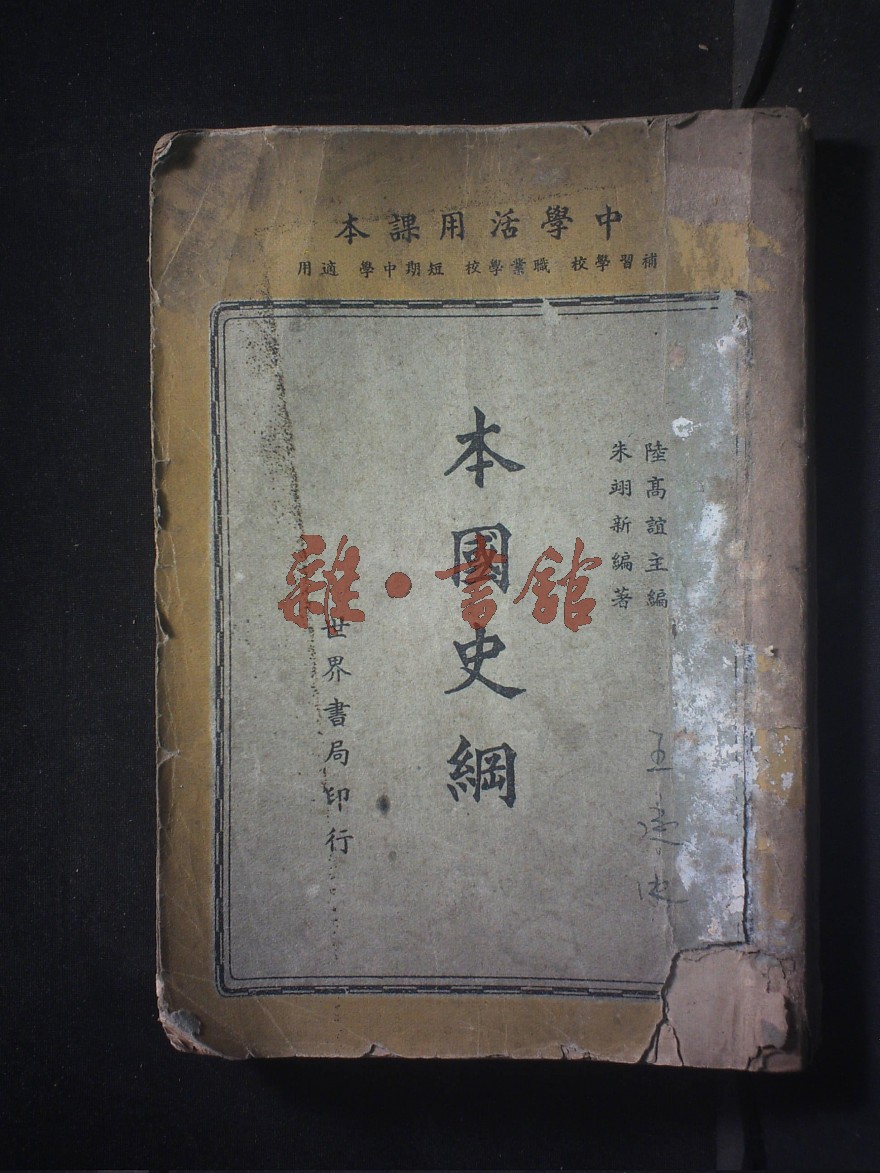 中學活用課本
補習學校 職業學校 短期中學 適用
陸高誼主編
朱翊新編著
本國史綱
世界書局印行
雜·書館